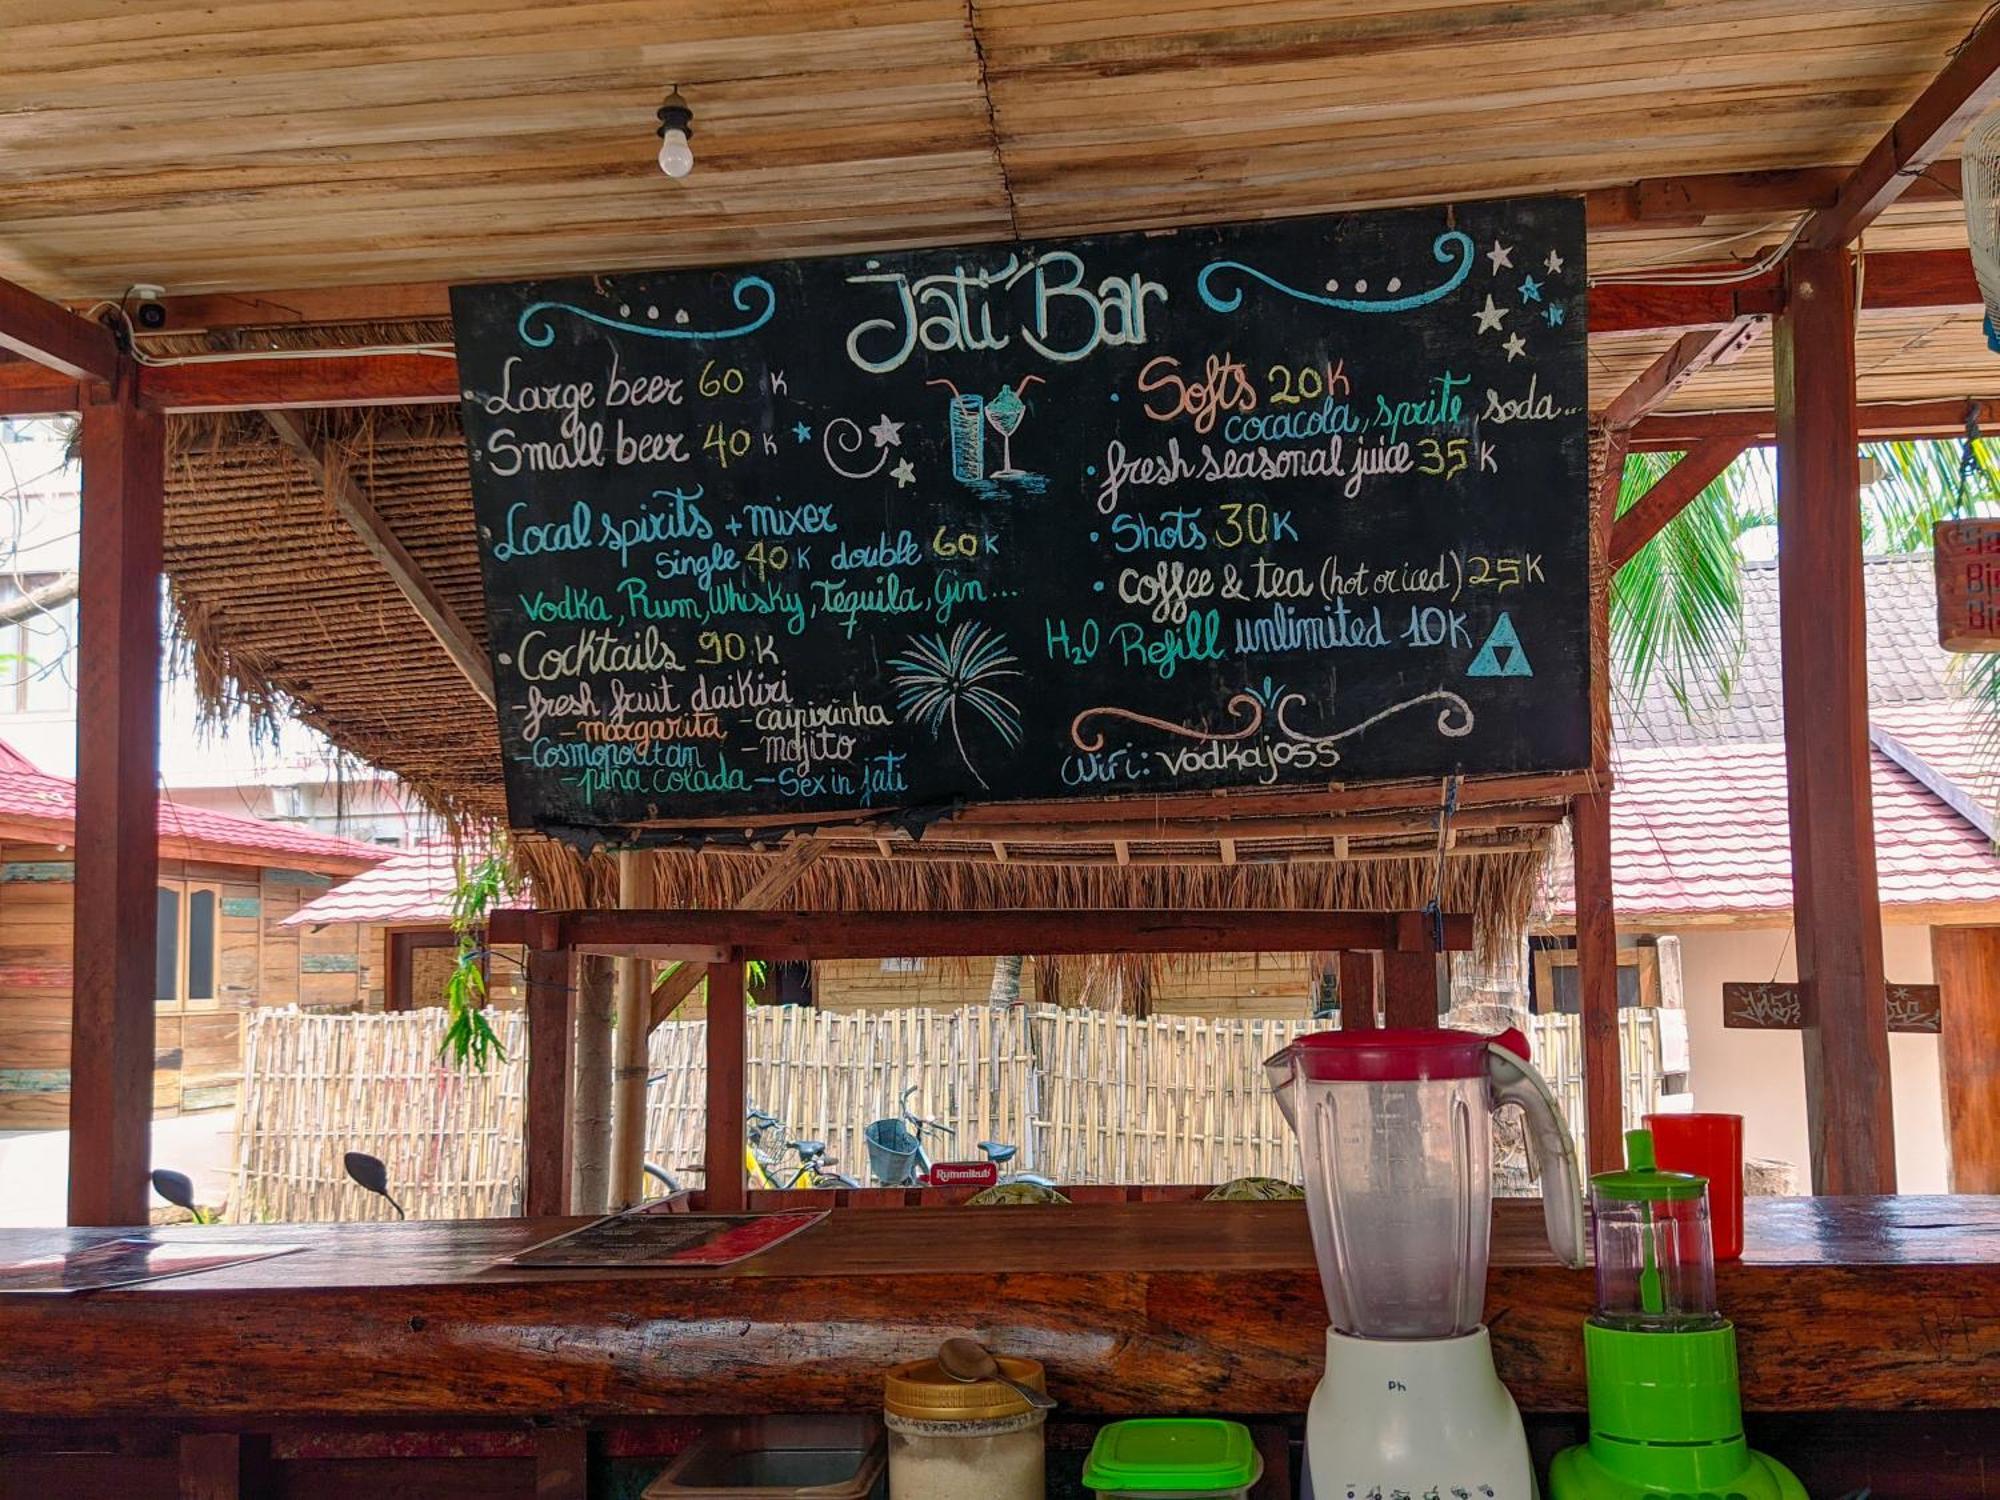 Jati Bar
Large beer 60 K
Small beer 40 K
Local spirits + mixer
Single 40 K double 60 K
Vodka, Rum, Whisky, Tequila, Gin...
Cocktails 90 K
- fresh fruit daikiri
- margarita - caipirinha
- Cosmopolitan - Mojito
- pina colada - Sex in jati
Softs 20K
cocacola, sprite, soda...
fresh seasonal juice 35 K
Shots 30K
coffee & tea (hot or iced) 25K
H2O Refill unlimited 10K
Wifi: vodkajoss
Rummikub
Ph